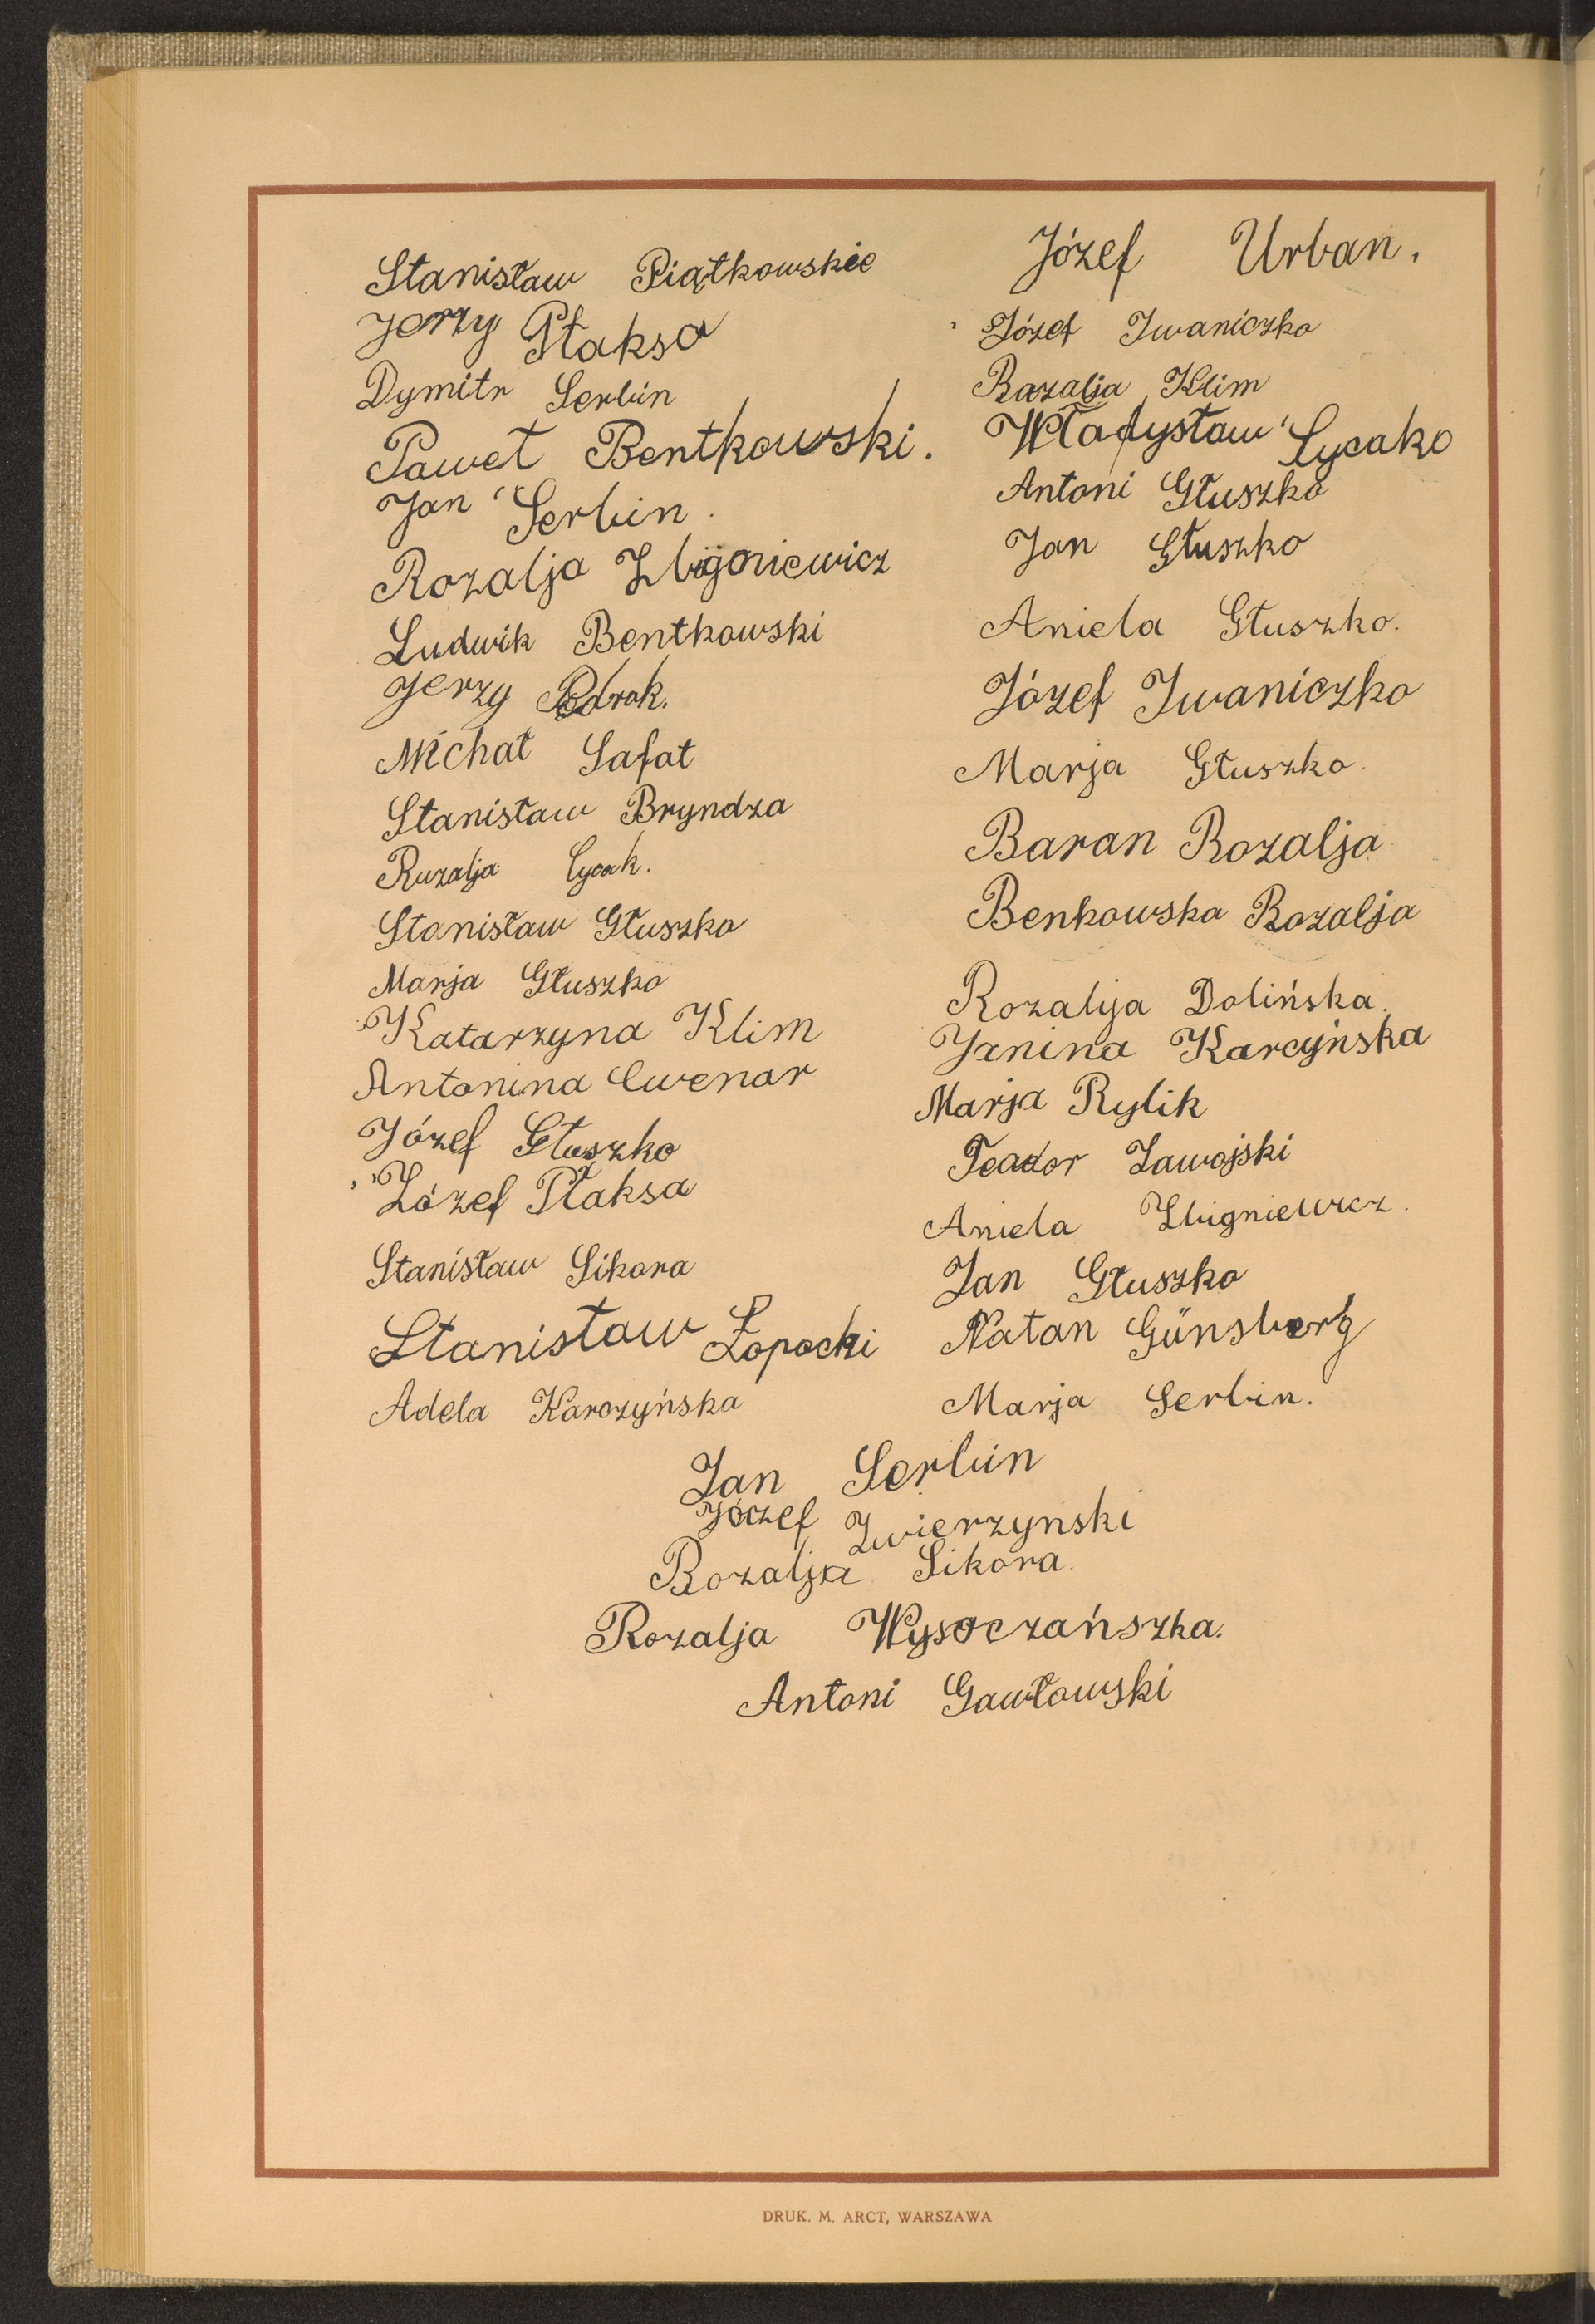 Stanisław Piątkowskie
Jerzy Płaksa
Dymitr Serbin
Paweł Bentkowski.
Jan Serbin.
Rozalja Zbigoniewicz
Ludwik Bentkowski
Jerzy Podrak.
Michał Safat
Stanisław Bryndza
Ruzalja Cycak.
Stanisław Głuszko
Marja Głuszko
Katarzyna Klim
Antonina Cwenar
Józef Głuszko
Józef Płaksa
Stanisław Sikora
Stanisław Łopocki
Adela Karczyńska
Józef Urban.
Józef Iwaniczko
Razalja Klim
Władysław Sycako
Antoni Głuszko
Jan Głuszko
Aniela Głuszko.
Józef Iwaniczko
Marja Głuszko.
Baran Rozalja
Benkowska Rozalja
Rozalija Dolińska.
Janina Karcyńska
Marja Rylik
Teador Zawojski
Aniela Zbigniewicz.
Jan Głuszko
Natan Günsberg
Marja Serbin.
Jan Serbin
Józef Zwierzynski
Rozalja Sikora.
Rozalja Wysoczańszka.
Antoni Gawłowski
DRUK. M. ARCT, WARSZAWA